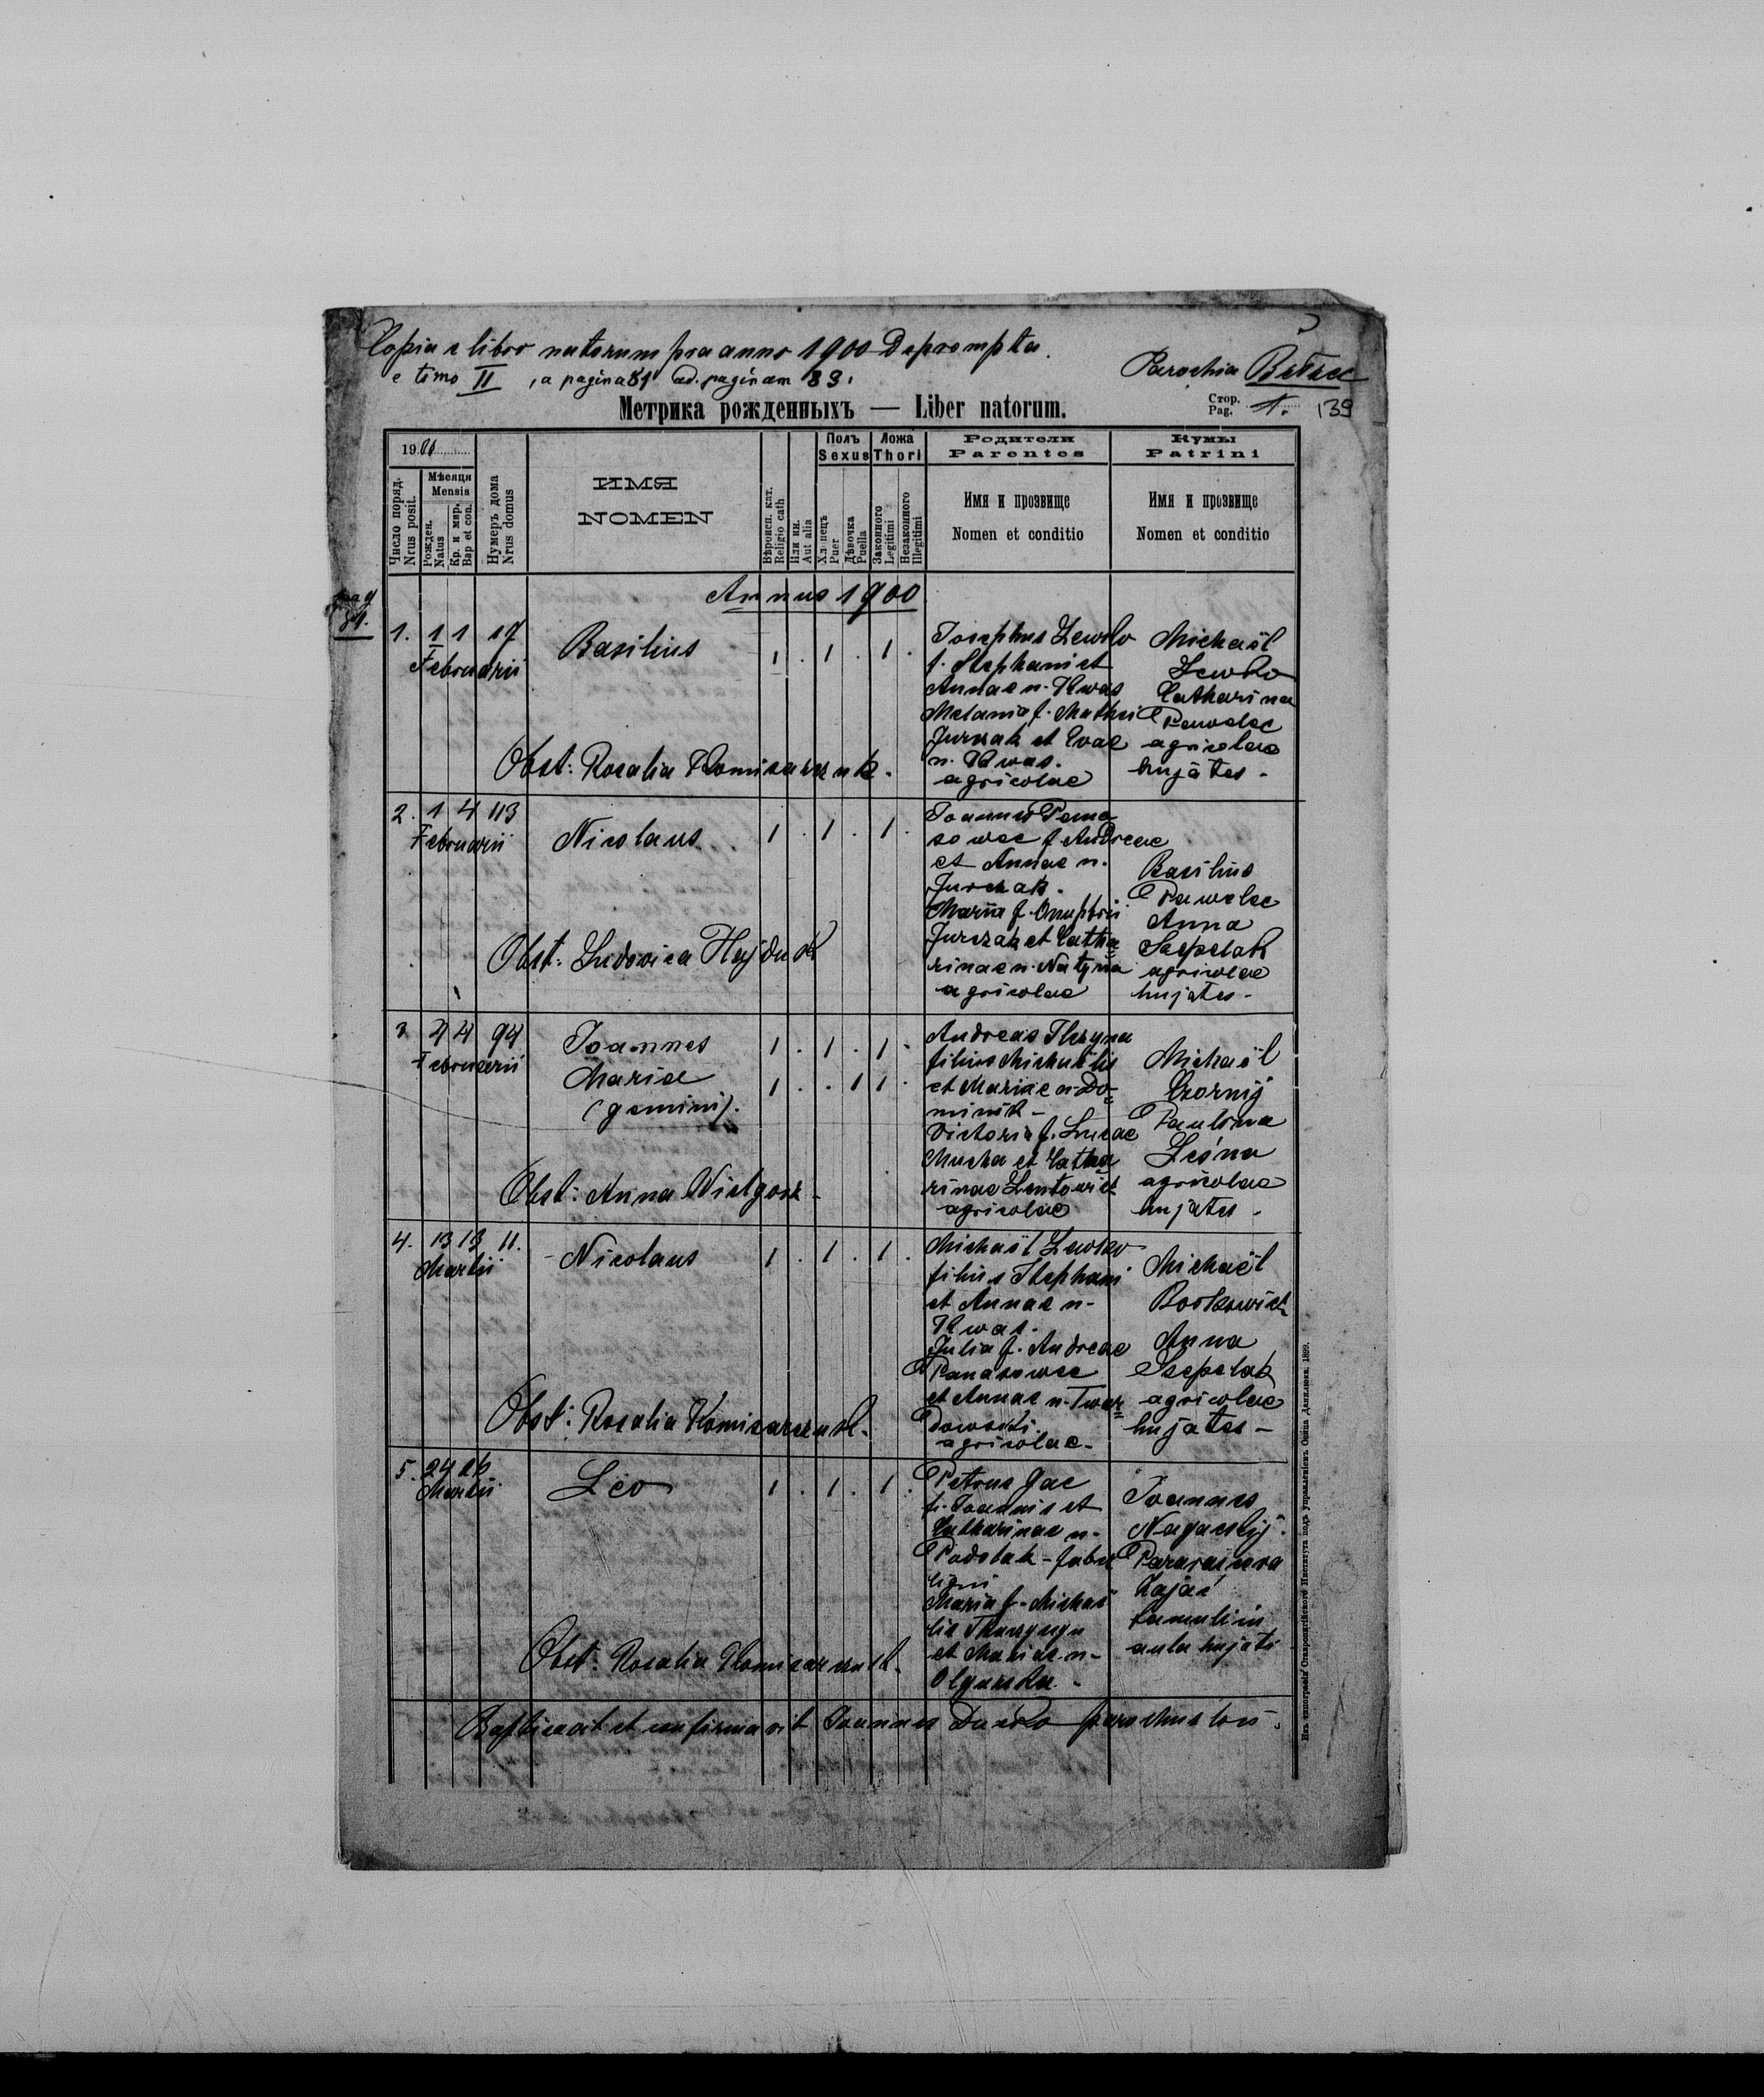 Copia e libro natorum pro anno 1900 Deprompta.
e tomo II, a pagina 81 ad paginam 83.
Parochia
Метрика рожденныхъ — Liber natorum.
Стор.
Pag. 1.
139
1900
Число поряд.
Nrus posit.
Мѣсяця
Mensis
Рожден.
Natus
Кр. и мир.
Bap et con.
Нумеръ дома
Nrus domus
ИМЯ
NOMEN
Вѣроисп. кат.
Religio cath
Или ин.
Aut alia
Полъ
Sexus
Хлопецъ
Puer
Дѣвочка
Puella
Ложа
Thori
Законного
Legitimi
Незаконного
Illegitimi
Родители
Parentes
Имя и прозвище
Nomen et conditio
Кумы
Patrini
Имя и прозвище
Nomen et conditio
Annus 1900
pag
81.
1. 1 1 17
Februarii
Basilius
1 . 1 . 1 .
Josephus Lewko
f. Stephani et
Annae n. Kwas
Melania f. Mathei
Jurczak et Evae
n. Kwas.
agricolae
Michaël
Lewko
Catharina
Pawelec
agricolae
hujates -
Obst: Rosalia Komisarczuk.
2. 1 4 113
Februarii
Nicolaus
1 . 1 . 1 .
Joannes Pana
sowec f. Andreae
et Annae n.
Jurczak.
Maria f. Onuphrii
Jurczak et Catha
rinae n. Natyna
agricolae
Basilius
Pawelec
Anna
Szepelak
agricolae
hujates -
Obst: Ludovica Hajduk
3. 4 4 94
Februarii
Joannes
Maria
(gemini).
1 . 1 . 1 .
1 . . 1 1 .
Andreas
filius Michaëlis
et Mariae n. Do=
minik -
Victoria f. Lucae
Mucha et Catha
rinae
agricolae
Michaël
Czornij
Paulina
Leśna
agricolae
hujates -
Obst: Anna
4. 13 13 11.
Martii
Nicolaus
1 . 1 . 1 .
Michaël Lewko
filius Stephani
et Annae n-
Kwas.
Julia f. Andreae
Panasowec
et Annae n. Twar=
dowski.
agricolae -
Michaël
Anna
Szepelak
agricolae
hujates -
Obst: Rosalia Komisarczuk -
5. 24 26
Martii
Leo
1 . 1 . 1 .
Petrus Gac
f. Joannis et
Catharinae n-
Podolak -
Maria f. Michaë
lis
et Mariae n-
Joannes
Zając
famuli in
aula hujati
Obst: Rosalia Komisarczuk -
Baptisavit et confirmavit Joannes parochus loci.
Изъ типографіи Ставропигійского Института подъ управленіемъ Осипа Данилюка. 1899.